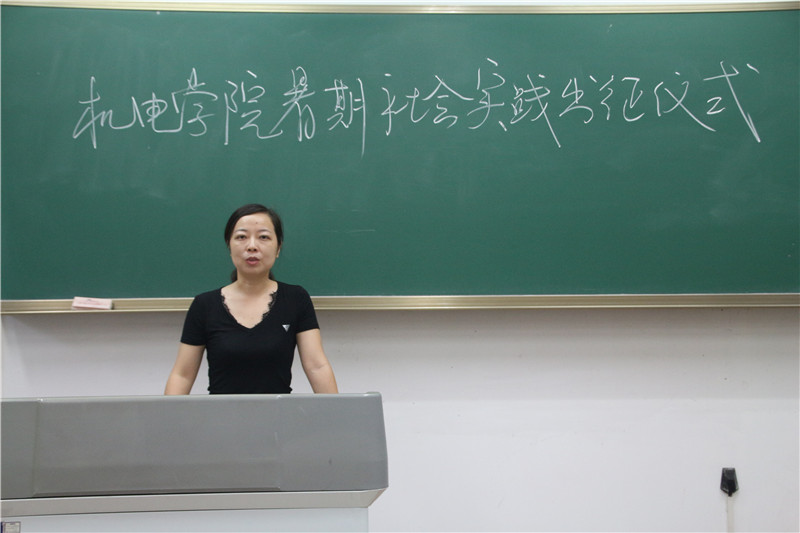 机电学院暑期社会实践出征仪式